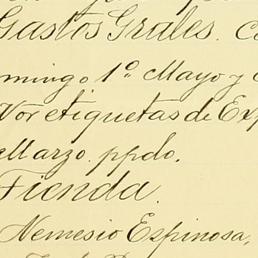 Gastos Grales.
omingo 1º Mayo y
Por etiquetas de Exp
Marzo. ppdo.
Tienda.
Nemesio Espinosa,